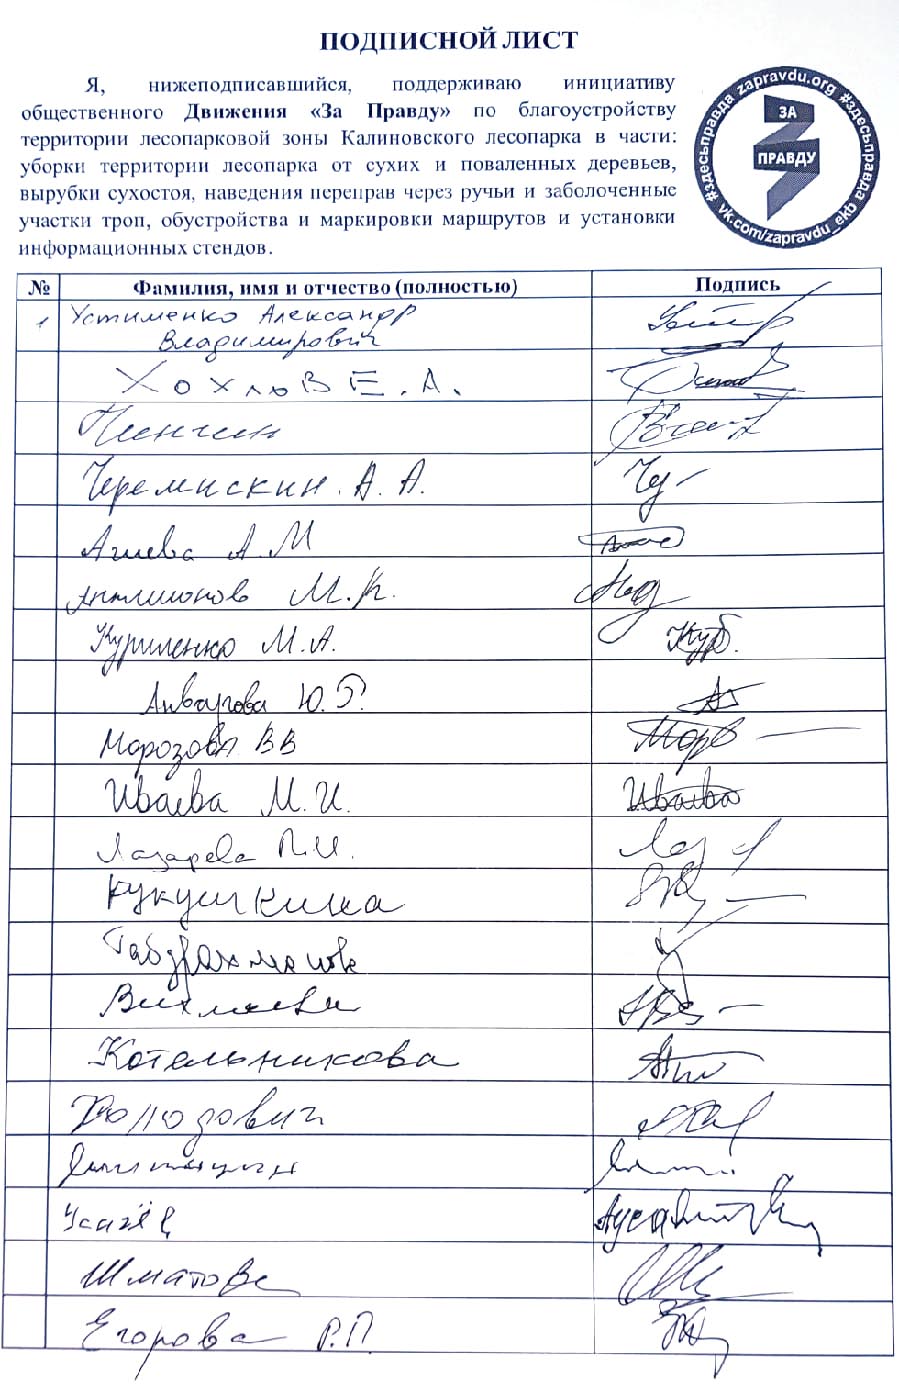 ПОДПИСНОЙ ЛИСТ
Я, нижеподписавшийся, поддерживаю инициативу
общественного Движения «За Правду» по благоустройству
территории лесопарковой зоны Калиновского лесопарка в части:
уборки территории лесопарка от сухих и поваленных деревьев,
вырубки сухостоя, наведения переправ через ручьи и заболоченные
участки троп, обустройства и маркировки маршрутов и установки
информационных стендов.
#здесьправда zapravdu.org #здесьправда vk.com/zapravdu_ekb
ЗА
ПРАВДУ
№ Фамилия, имя и отчество (полностью) Подпись
1 Устименко Александр
Владимирович
Хохлов Е.А.
Черемискин А.А.
Агиева А.М
М.К.
Куриленко М.А.
Анварова Ю.Р.
Морозова ВВ
Иваева М.И. Иваева
Лазарева П.И.
Кукушкина
Габдрахманова
Котельникова
Шматова
Егорова Р.П.